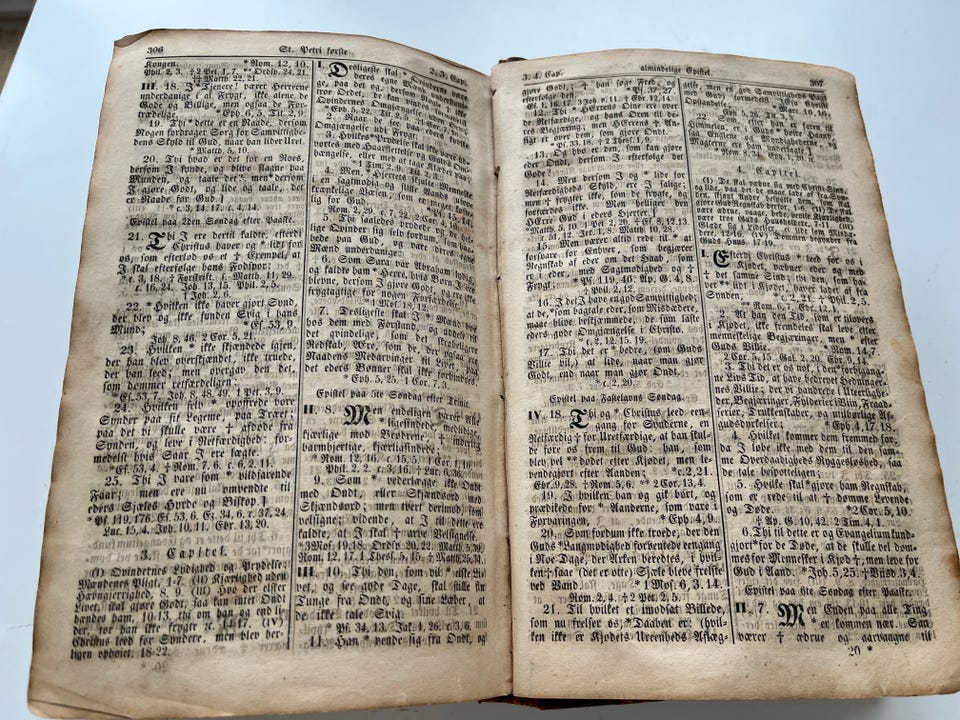 306
St. Petri første
2. 3. Cap.
Kongen. *Rom. 12, 10.
Phil. 2, 3. †2 Pet. 1, 7. **Ordsp. 24, 21.
††Matth. 22, 21.
III. 18. I *Tjenere! værer Herrerne
underdanige i al Frygt, ikke alene de
Gode og Billige, men ogsaa de For-
trædelige. *Eph. 6, 5. Tit. 2, 9.
19. Thi *dette er Naade, dersom
Nogen fordrager Sorg for Samvittighe-
dens Skyld til Gud, naar han lider Uret
*Matth. 5, 10.
20. Thi hvad er det for en Roes,
dersom I synde, og blive slagne paa
Munden, og taale det? men *dersom
I gjøre Godt, og lide og taale, det
er Naade for Gud.
*c. 3, 14. 17. c. 4, 14.
Epistel paa 2den Søndag efter Paaske.
21. Thi I ere dertil kaldte, efterdi
Christus haver og * lidt for
os, som efterlod os et † Exempel, at
I skal efterfølge hans Fodspor:
c. 16, 24. Joh. 13, 15. Phil. 2, 5.
† Joh. 2, 6.
22. *Hvilken ikke haver gjort Synd,
der blev og ikke funden Svig i hans
Mund; *Es. 53, 9.
Joh. 8, 46. 2 Cor. 5, 21.
23. Hvilken * ikke skjændte igjen,
der han blev overskjændt, ikke truede,
der han leed; men overgav det den,
som dømmer retfærdeligen:
*Es. 53, 7. Joh. 8, 48. 49. c. 18, 23.
24. Hvilken selv * opofrede vore
Synder paa sit Legeme, paa Træet;
paa det vi skulle være † afdøde fra
Synden, og leve i Retfærdighed: for-
medelst hvis Saar I ere lægte.
*Es. 53, 4. †Rom. 7, 6. c. 6, 2. 11.
25. Thi I vare som * vildfarende
Faar; men ere nu omvendte til
eders Sjæles Hyrde og Biskop.
*Ps. 119, 176. Es. 53, 6. Ez. 34, 6. c. 37, 24
Luc. 15, 4. Joh. 10, 11. Ebr. 13, 20.
3. Capitel.
(I) Qvindernes Lydighed og Prydelse;
Mændenes Pligt. 1-7. (II) Kjærlighed uden
Havngjerrighed, 8. 9. (III) Hvo der elsker
Livet, skal gjøre Godt, saa kan intet Ondt
hændes ham, 10-13. thi om han end li-
der, tør han ikke frygte. 14-17. (IV)
Christus leed for Syndere, men blev her-
ligen ophøiet. 18-22.
I. Desligeste skal * Qvinderne være
deres egne Mænd underdanige,
paa det og, dersom Nogle ikke
troe Ordet, de kan vindes ved
Qvindernes Omgjængelse uden Ord,
2. Naar de see eders kydske
Omgjængelse udi Frygt.
3. Hvilkes *Prydelse skal ikke være ud-
vortes med Haarflettelse og Guds Om-
hængelse, eller med at tage Klæder paa.
4. Men, † Hjertets skjulte Menneske
i en sagtmodig og stille Aands ufor-
krænkelige Væsen, som er meget koste-
lig for Gud.
5. Thi saaledes prydede og de hel-
lige Qvinder sig selv fordum, som haa-
bede paa Gud, og vare deres egne
Mænd underdanige:
6. Som Sara var Abraham lydig,
og kaldte ham * Herre, hvis Børn I ere
blevne, dersom I gjøre Godt, og ere ikke
frygtagtige for nogen Forfærdelse.
7. Desligeste skulle I * Mænd boe
hos dem med Forstand, og beder
det qvindelige, som det skrøbeligere
Redskab, Ære, som de, der og ere
Naadens Medarvinger til Livet, at
eders Bønner skal ikke forhindres.
*Eph. 5, 25. 1 Cor. 7, 3.
Epistel paa 5te Søndag efter Trinit.
II. 8. Men endeligen værer alle
ligesindede, medlidende,
kjærlige mod Brødrene, † inderlig
barmhjertige, kjærligsindede:
*Rom. 12, 16. c. 15, 5. 1 Cor. 1, 10.
Phil. 2, 2. c. 3, 16. † Luc. 6, 36.
9. Som * vederlægge ikke Ondt
med Ondt, eller Skjændsord med
Skjændsord; men tvert derimod vel-
signe; vidende, at I til dette ere
kaldte, at I skal † arve Velsignelse.
III. 10. Thi den, som vil * elske Li-
vet, og see gode Dage, skal stille sin
Tunge fra Ondt, og sine Læber, at
de ikke tale Svig.
*Ps. 34, 13. Jak. 1, 26. c. 3, 6.
11. Han * vende sig fra Ondt, og
3. 4. Cap.
almindelige Epistel.
307
gjøre Godt; † han søge Fred, og
efterfølge den. *Ps. 37, 27.
Es. 1, 16. 17. 3 Joh. v. 11. † Ebr. 12, 14.
12. Thi * HErrens Øine ere over
de Retfærdige, og hans Øren til de-
res Begjæring; men HErrens † An-
sigt er over dem, som gjøre Ondt.
*Ps. 33, 18. †2 Thess. 1, 9.
13. Og hvo er den, som kan gjøre
eder Ondt, dersom I efterfølge det
Gode?
14. Men dersom I og * lide for
Retfærdigheds Skyld, ere I salige;
men † frygter ikke, som de frygte, og
forfærdes ikke. Men helliger den
HErre Gud i eders Hjerter.
*Matth. 5, 10. 1 Pet. 2, 20. †Es. 8, 12. 13.
Jer. 1, 8. Matth. 10, 28.
15. Men værer altid rede til * at
forsvare for Enhver, som begjærer
Regnskab af eder om det Haab, som
er i eder, med Sagtmodighed og †
Frygt; *Ps. 119, 46. Ap. G. 4, 8.
† Phil. 2, 12.
16. I det I have en god Samvittighed;
at de, *som bagtale eder, som Misdædere,
maae blive beskjæmmede, de som laste
eders gode Omgjængelse i Christo.
*c. 2, 12. 15. 19.
17. Thi det er *bedre, (om Guds
Billie vil,) at lide, naar man gjør
Godt, end naar man gjør Ondt.
*c. 2, 20.
Epistel paa Fastelavns Søndag.
IV. 18. Thi og * Christus leed een-
gang for Synderne, en
Retfærdig † for Uretfærdige, at han skul-
de føre os frem til Gud: han, som
blev vel **dødet efter Kjødet, men le-
vendegjort efter Aanden; *c. 2, 21.
Ebr. 9, 28. †Rom. 5, 6. **2 Cor. 13, 4.
19. I hvilken han og gik bort, og
prædikede for * Aanderne, som vare i
Forvaringen, *Eph. 4, 9.
20. Som fordum ikke troede, der den
Guds *Langmodighed forventede eengang
i Noe Dage, der Arken beredtes, i hvil-
ken † faae (det er otte) Sjæle bleve frelste
ved Vand. *1 Mos. 6, 3. 14.
Rom. 2, 4. †2 Pet. 2, 5.
21. Til hvilket et imodsat Billede,
som nu frelser os, *Daaben er: (hvil-
ken ikke er Kjødets Ureenheds Aflæg-
gelse, men en god Samvittigheds Pagt
med Gud) formedelst JEsu Christi
Opstandelse.
Himmelen, er * Guds høire Haand,
*Rom. 8, 34. Eph. 1, 20. 21.
4. Capitel.
I. Efterdi Christus * leed for os i
Kjødet, væbner eder og med
† det samme Sind; thi den, som ha-
ver ** lidt i Kjødet, haver ladet af fra
Synden, *c. 2, 21. † Phil. 2, 5.
**Rom. 6, 7.
2. At han den Tid, som er tilovers
i Kjødet, ikke fremdeles skal leve efter
menneskelige Begjæringer, men * efter
Guds Billie. *Rom. 14, 7.
2 Cor. 5, 15. Gal. 2, 20. Ebr. 9, 14.
3. Thi det er os nok, i den forbigangne
Livs Tid, at have bedrevet Hedninger-
nes Billie; der vi vandrede i Uteerligheder,
Begjæringer, Fylderier i Viin, Fraadse-
rier, Drukkenskaber, og utilbørlige Af-
gudsdyrkelser; *Eph. 4, 17. 18.
4. Hvilket kommer dem fremmed for,
da I løbe ikke med dem til den samme
Overdaadigheds Ryggesløshed, saa
de tale bespotteligen;
5. Hvilke skal * gjøre ham Regnskab,
som er rede til at † dømme Levende
og Døde. *2 Cor. 5, 10.
† Ap. G. 10, 42. 2 Tim. 4, 1.
6. Thi til dette er og Evangelium kund-
gjort *for de Døde, at de skulle vel døm-
mes for Mennesker i Kjød †, men leve for
Gud i Aand. *Joh. 5, 25. † Viisd. 3, 4.
Epistel paa 6te Søndag efter Paaske.
II. 7. Men Enden paa alle Ting
* er kommen nær. Saa
værer † ædrue og aarvaagne til
20 *